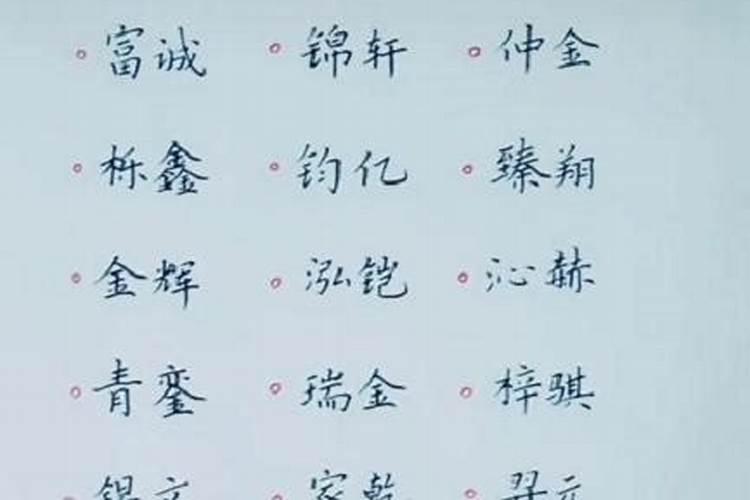 富诚 锦轩 仲金
栎鑫 钧亿 臻翔
金辉 泓铠 沁赫
青銮 瑞金 梓骐
锦文 家乾